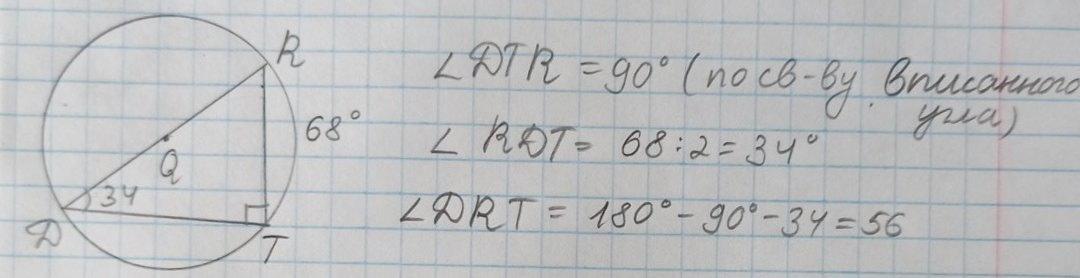 R
68°
Q
34
D
T
∠DTR = 90° (по св-ву вписанного
угла)
∠ RDT = 68:2 = 34°
∠DRT = 180° - 90° - 34 = 56